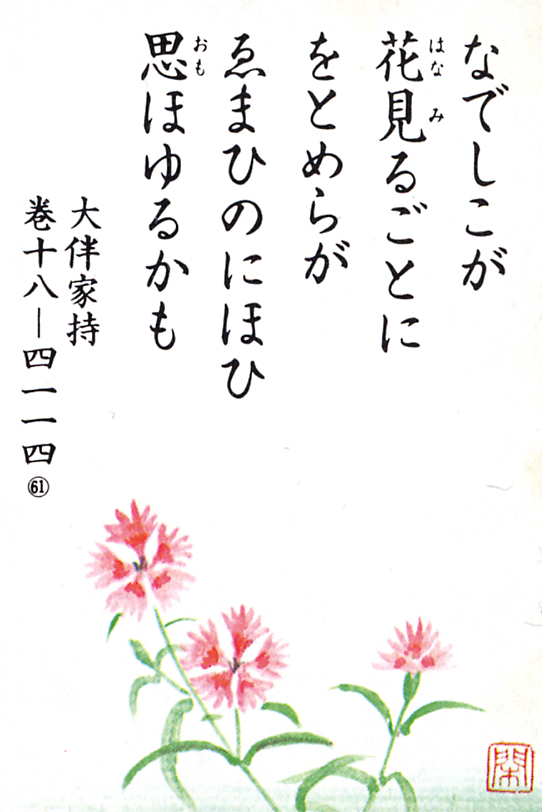 なでしこが
花見るごとに
をとめらが
ゑまひのにほひ
思ほゆるかも
大伴家持
巻十八―四一一四㉛